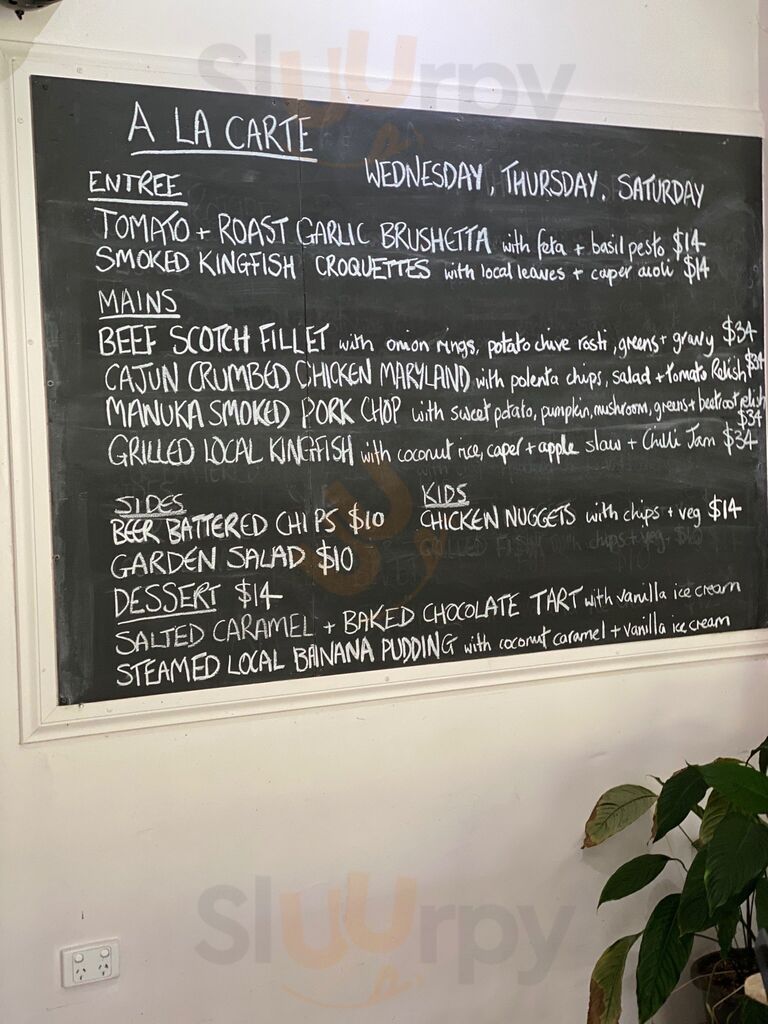 Sluurpy
A LA CARTE
WEDNESDAY, THURSDAY, SATURDAY
ENTREE
TOMATO + ROAST GARLIC BRUSHETTA with feta + basil pesto $14
SMOKED KINGFISH CROQUETTES with local leaves + caper aioli $14
MAINS
BEEF SCOTCH FILLET with onion rings, potato chive rosti, greens + gravy $34
CAJUN CRUMBED CHICKEN MARYLAND with polenta chips, salad + tomato Relish $34
MANUKA SMOKED PORK CHOP with sweet potato, pumpkin, mushroom, greens + beetroot relish
$34
GRILLED LOCAL KINGFISH with coconut rice, caper + apple slaw + Chilli Jam $34
SIDES
BEER BATTERED CHIPS $10
GARDEN SALAD $10
KIDS
CHICKEN NUGGETS with chips + veg $14
DESSERT $14
SALTED CARAMEL + BAKED CHOCOLATE TART with vanilla ice cream
STEAMED LOCAL BANANA PUDDING with coconut caramel + vanilla ice cream
Sluurpy